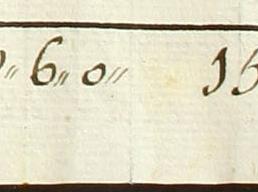 〃 6〃 0〃 15